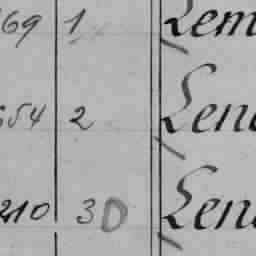 69 1 Lem
54 2 Len
210 3D Len